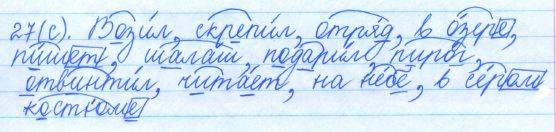 27(с). Возил, скрепил, отряд, в озере,
пишет, шалаш, подарил, пирог,
отвинтил, читает, на небе, в сером
костюме